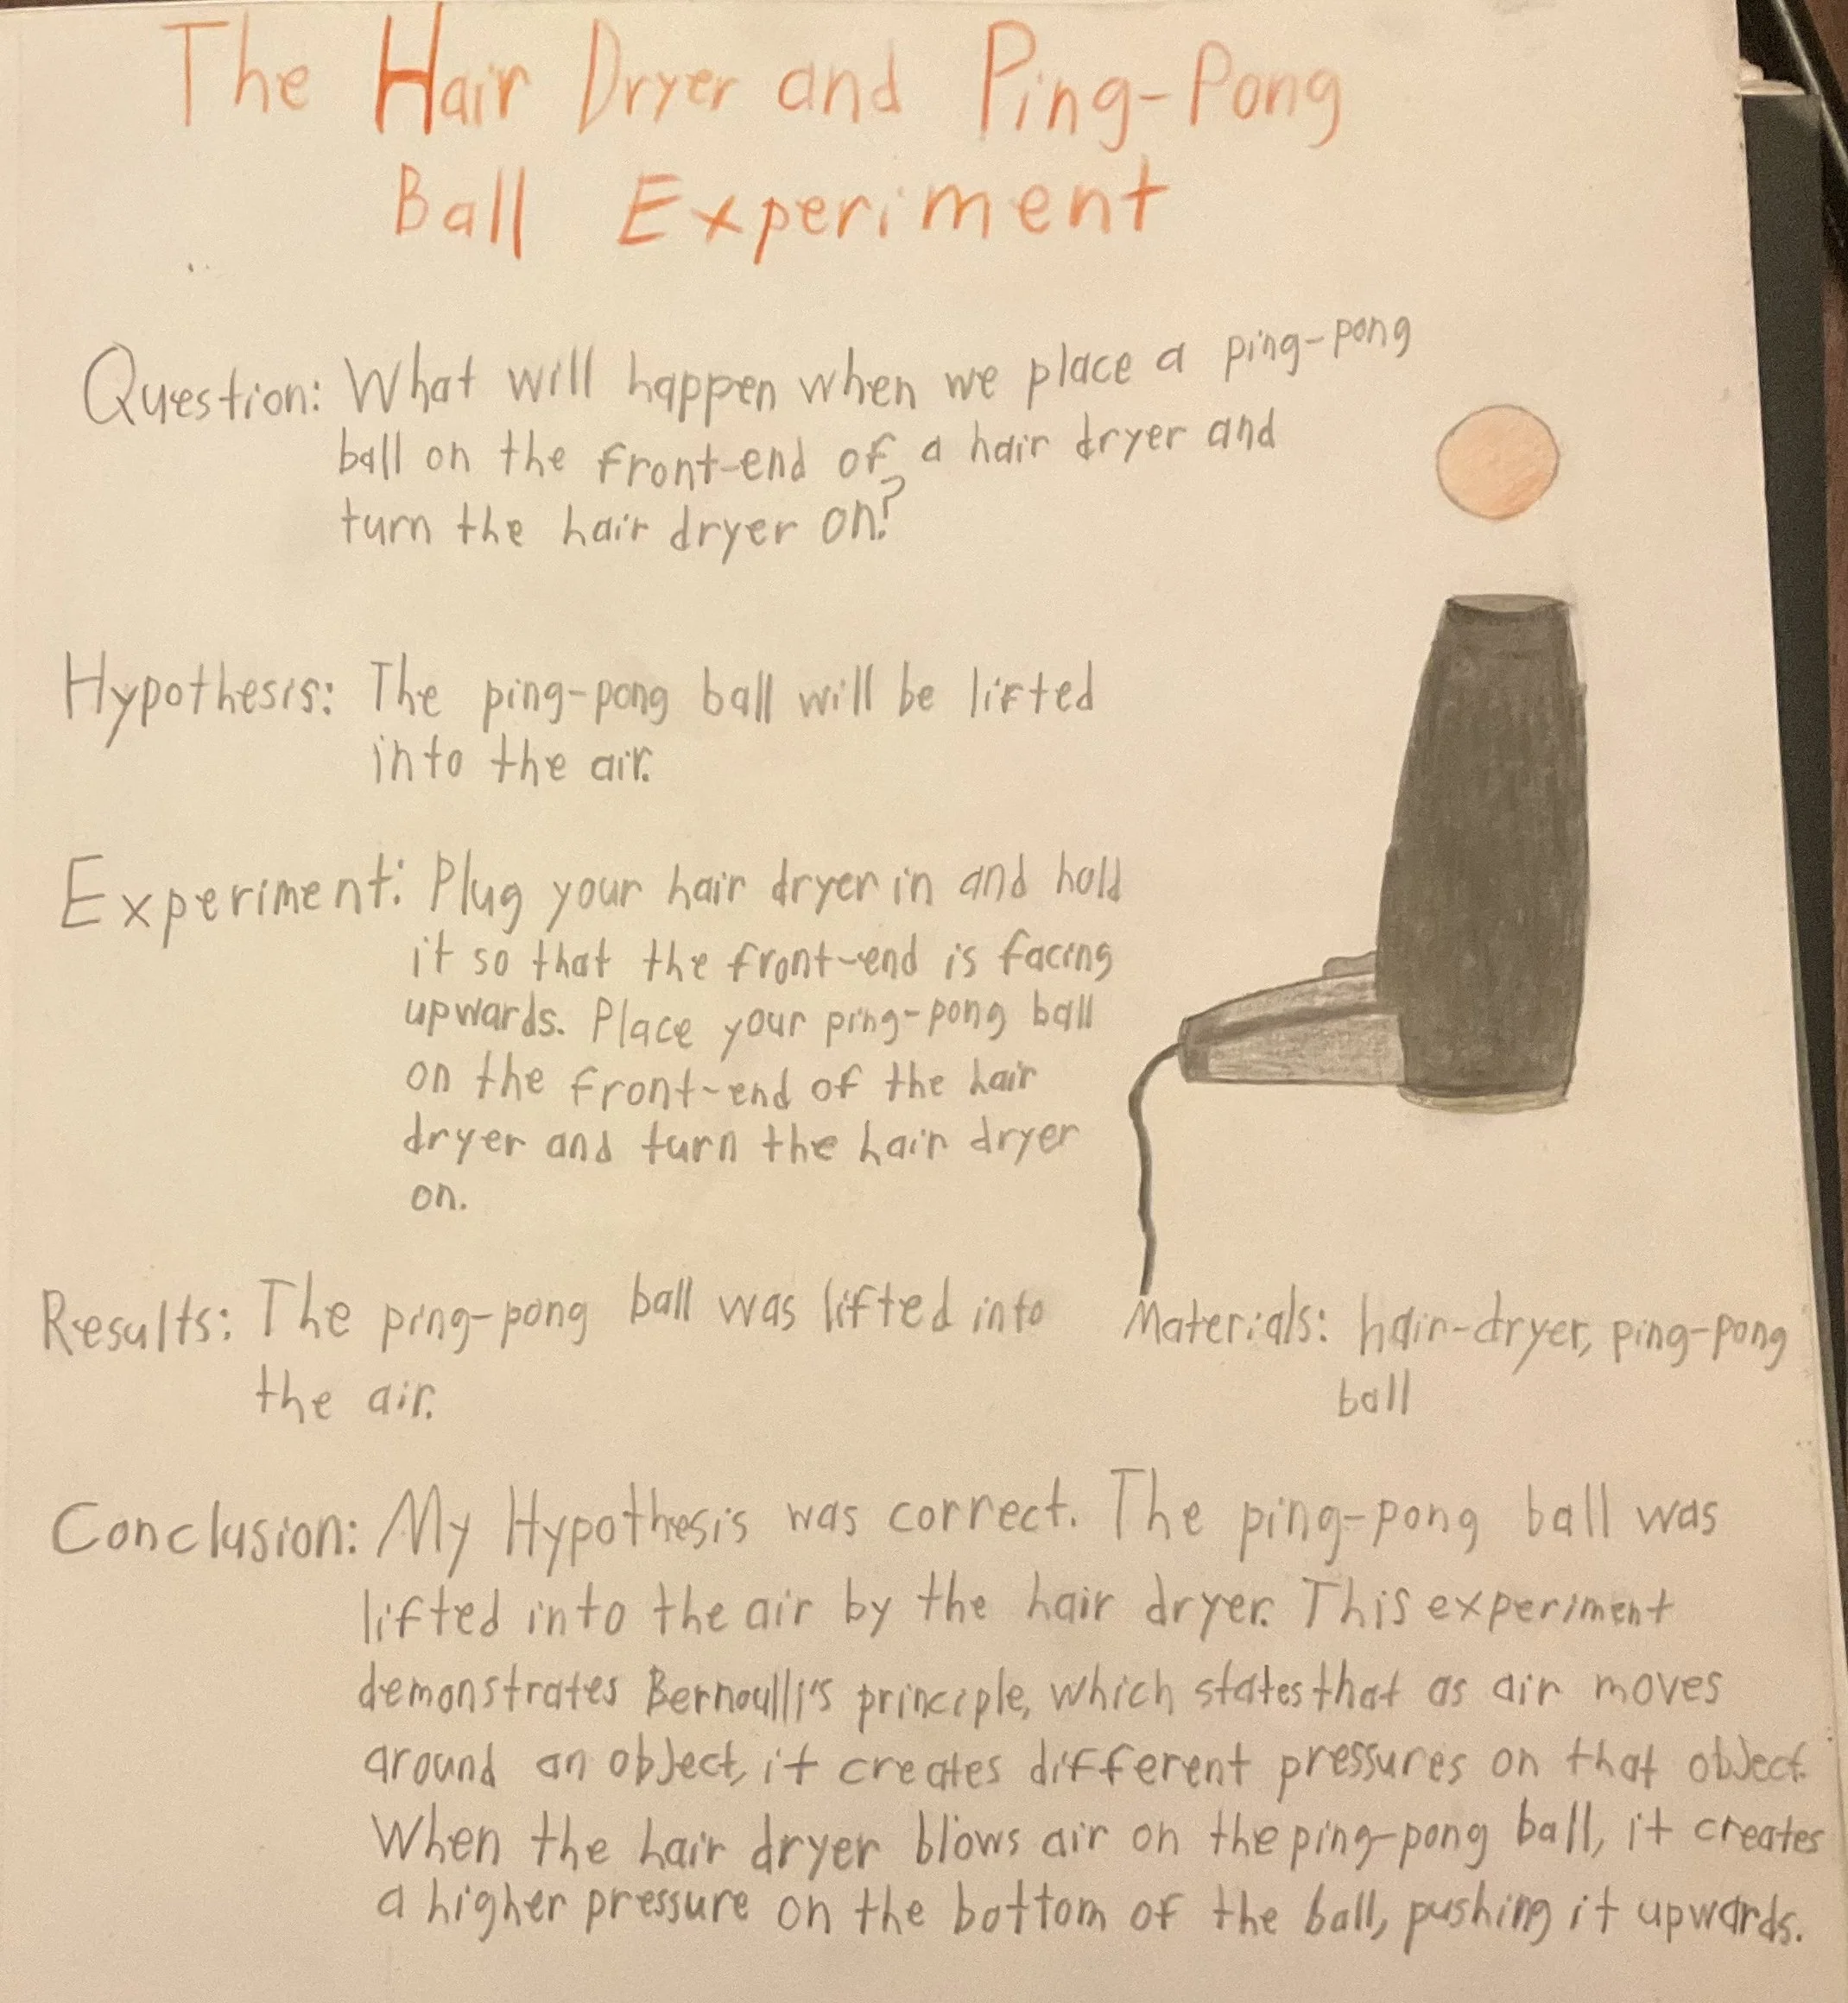 The Hair Dryer and Ping-Pong
Ball Experiment
Question: What will happen when we place a ping-pong
ball on the front-end of a hair dryer and
turn the hair dryer on?
Hypothesis: The ping-pong ball will be lifted
into the air.
Experiment: Plug your hair dryer in and hold
it so that the front-end is facing
upwards. Place your ping-pong ball
on the front-end of the hair
dryer and turn the hair dryer
on.
Results: The ping-pong ball was lifted into
the air.
Materials: hair-dryer, ping-pong
ball
Conclusion: My Hypothesis was correct. The ping-pong ball was
lifted into the air by the hair dryer. This experiment
demonstrates Bernoulli's principle, which states that as air moves
around an object, it creates different pressures on that object.
When the hair dryer blows air on the ping-pong ball, it creates
a higher pressure on the bottom of the ball, pushing it upwards.